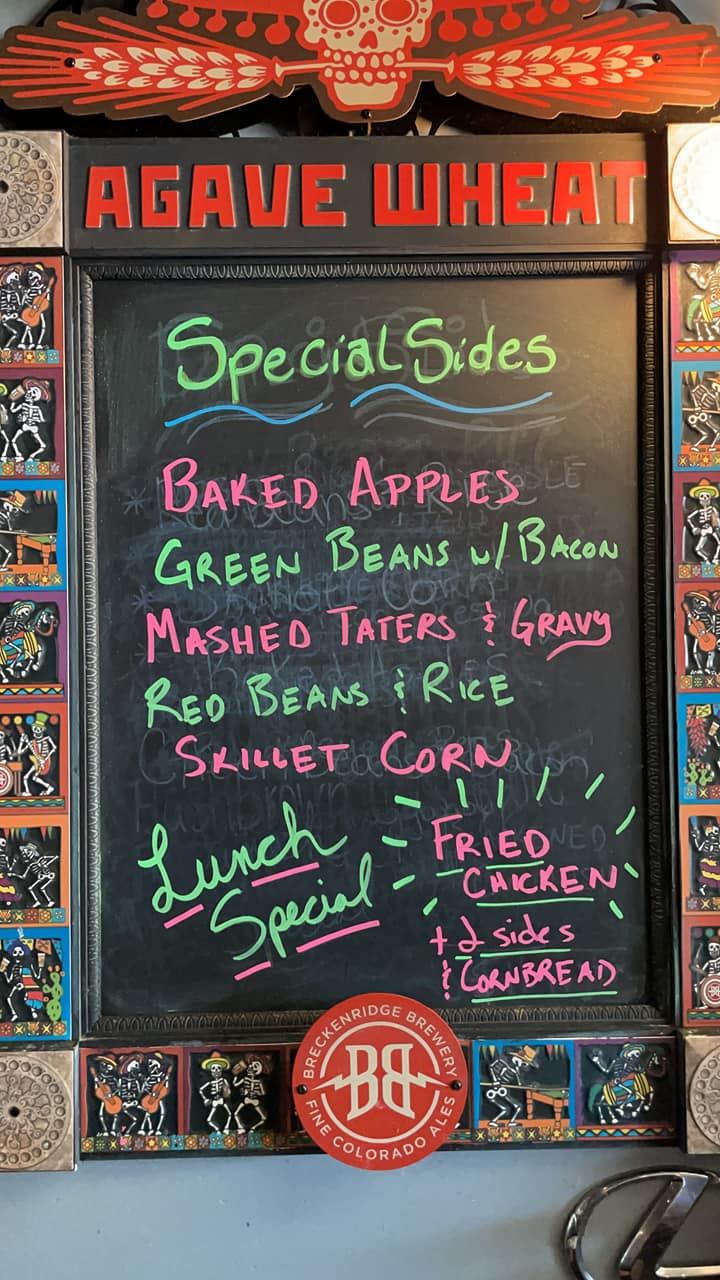 AGAVE WHEAT
Special Sides
BAKED APPLES
GREEN BEANS W/ BACON
MASHED TATERS & GRAVY
RED BEANS & RICE
SKILLET CORN
Lunch
Special
FRIED
CHICKEN
+ 2 sides
& CORNBREAD
BRECKENRIDGE BREWERY
BB
FINE COLORADO ALES